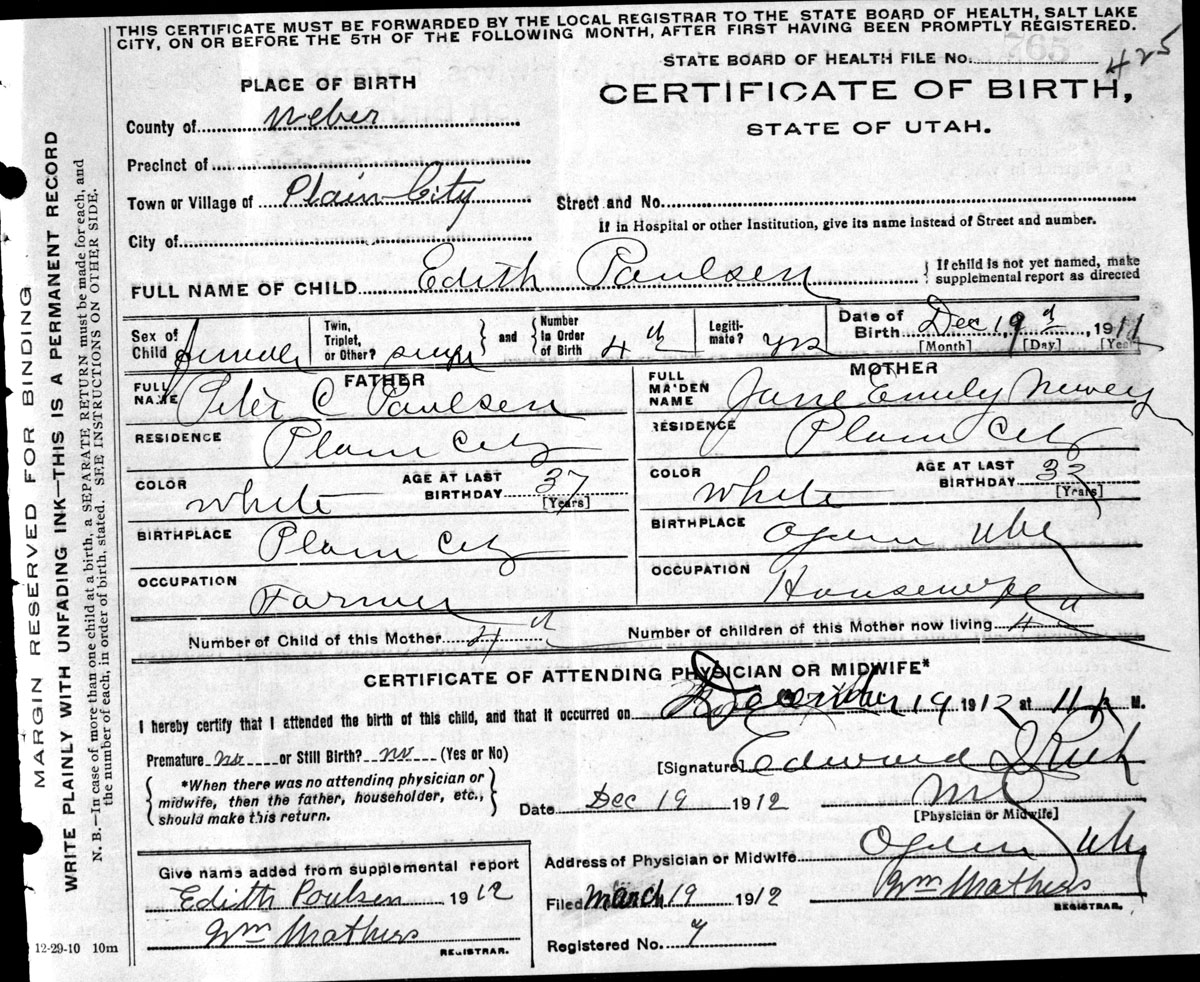 THIS CERTIFICATE MUST BE FORWARDED BY THE LOCAL REGISTRAR TO THE STATE BOARD OF HEALTH, SALT LAKE
CITY, ON OR BEFORE THE 5TH OF THE FOLLOWING MONTH, AFTER FIRST HAVING BEEN PROMPTLY REGISTERED.
765
STATE BOARD OF HEALTH FILE No. 425
PLACE OF BIRTH
CERTIFICATE OF BIRTH,
STATE OF UTAH.
County of Weber
Precinct of
Town or Village of Plain City
Street and No.
If in Hospital or other Institution, give its name instead of Street and number.
City of
FULL NAME OF CHILD Edith Paulsen
{ If child is not yet named, make
supplemental report as directed
Sex of Child female
Twin, Triplet, or Other?
and
Number In Order of Birth 4th
Legiti-mate? yes
Date of Birth Dec 19, 191
[Month] [Day] [Year]
FATHER
FULL NAME Peter C Paulsen
MOTHER
FULL MAIDEN NAME Jane Emily
RESIDENCE Plain City
RESIDENCE Plain City
COLOR White
AGE AT LAST BIRTHDAY 37 [Years]
COLOR White
AGE AT LAST BIRTHDAY [Years]
BIRTHPLACE Plain City
BIRTHPLACE Ogden
OCCUPATION Farmer
OCCUPATION Housewife
Number of Child of this Mother 4th
Number of children of this Mother now living 4
CERTIFICATE OF ATTENDING PHYSICIAN OR MIDWIFE*
I hereby certify that I attended the birth of this child, and that it occurred on December 19 1912 at 11 M.
Premature no or Still Birth? no (Yes or No)
[Signature] Edward I Rich
*When there was no attending physician or
midwife, then the father, householder, etc.,
should make this return.
Date Dec 19 1912
[Physician or Midwife]
Give name added from supplemental report
Edith Poulsen 1912
Wm Mathers
REGISTRAR.
Address of Physician or Midwife Ogden
Filed March 19 1912 Wm Mathers
REGISTRAR.
Registered No. 7
12-29-10 10m
MARGIN RESERVED FOR BINDING
WRITE PLAINLY WITH UNFADING INK—THIS IS A PERMANENT RECORD
N. B.—In case of more than one child at a birth, a SEPARATE RETURN must be made for each, and
the number of each, in order of birth, stated. SEE INSTRUCTIONS ON OTHER SIDE.